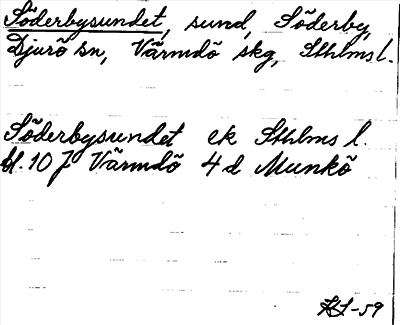 Söderbysundet, sund, Söderby,
Djurö sn, Värmdö skg, Sthlms l.
Söderbysundet ek Sthlms l.
bl. 10 J Värmdö 4 d Munkö
-59